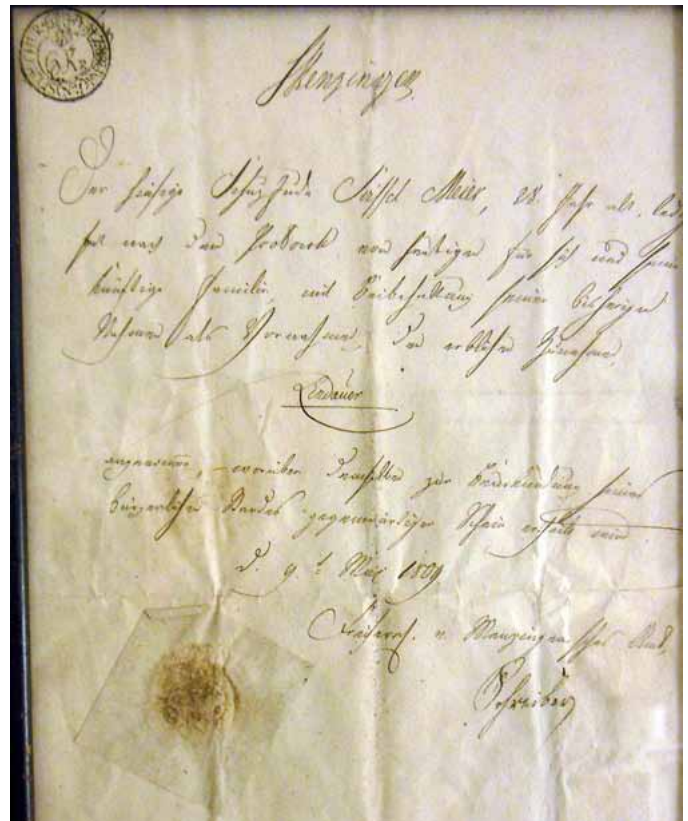 Menzingen
Der hiesige Schuz Jude Süssel Meier, 28. Jahr alt, led
hat nach dem Protocol von heutigem für sich und seine
künftige Familie, mit Beibehaltung seiner bisherigen
Nahmen als Vornahmen, den erblichen Zunahmen
Lindauer
angenommen, worüber demselben zur Beurkundung seines
bürgerlichen Standes gegenwärtiger Schein ertheilt
d. 9.t Mai 1809
Freiherrl. v. Menzingen sches Amt,
Schreiber